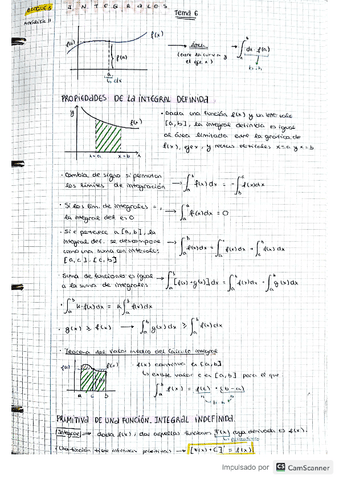 BLOQUE 6
INTEGRALES
Tema 6
f(x)
→ Área
→ ∫ dx f(x)
PROPIEDADES DE LA INTEGRAL DEFINIDA.
y
f(x)
x=a x=b x
· Dada una función f(x) y un
[a,b], la integral definida es igual
al área limitada entre la gráfica de
f(x), eje x, y rectas verticales x=a y x=b
· Cambia de signo si permutan
los límites de integración → ∫ f(x)dx = - ∫ f(x)dx
· Si los lím. de integrales =,
la integral def. es 0 → ∫ f(x)dx = 0
· Si c pertenece a [a,b], la
integral def. se descompone
como una suma en intervalos
[a,c], [c,b]
→ ∫ f(x)dx = ∫ f(x)dx + ∫ f(x)dx
· Suma de funciones es igual
a la suma de integrales
→ ∫ [f(x)+g(x)]dx = ∫ f(x)dx + ∫ g(x)dx
· ∫ k·f(x)dx = k ∫ f(x)dx
· g(x) ≥ f(x) → ∫ g(x)dx ≥ ∫ f(x)dx
· Teorema del Valor medio del Cálculo Integral
f(x) continua en [a,b]
existe valor c en [a,b] para el que
∫ f(x) = f(c) · (b-a)
a c b
PRIMITIVA DE UNA FUNCIÓN. INTEGRAL INDEFINIDA.
Integrar → dada f(x), dar aquellas funciones F(x) cuya derivada es f(x).
Una función tiene infinitas primitivas → [F(x)+C]' = f(x)
Impulsado por CS CamScanner